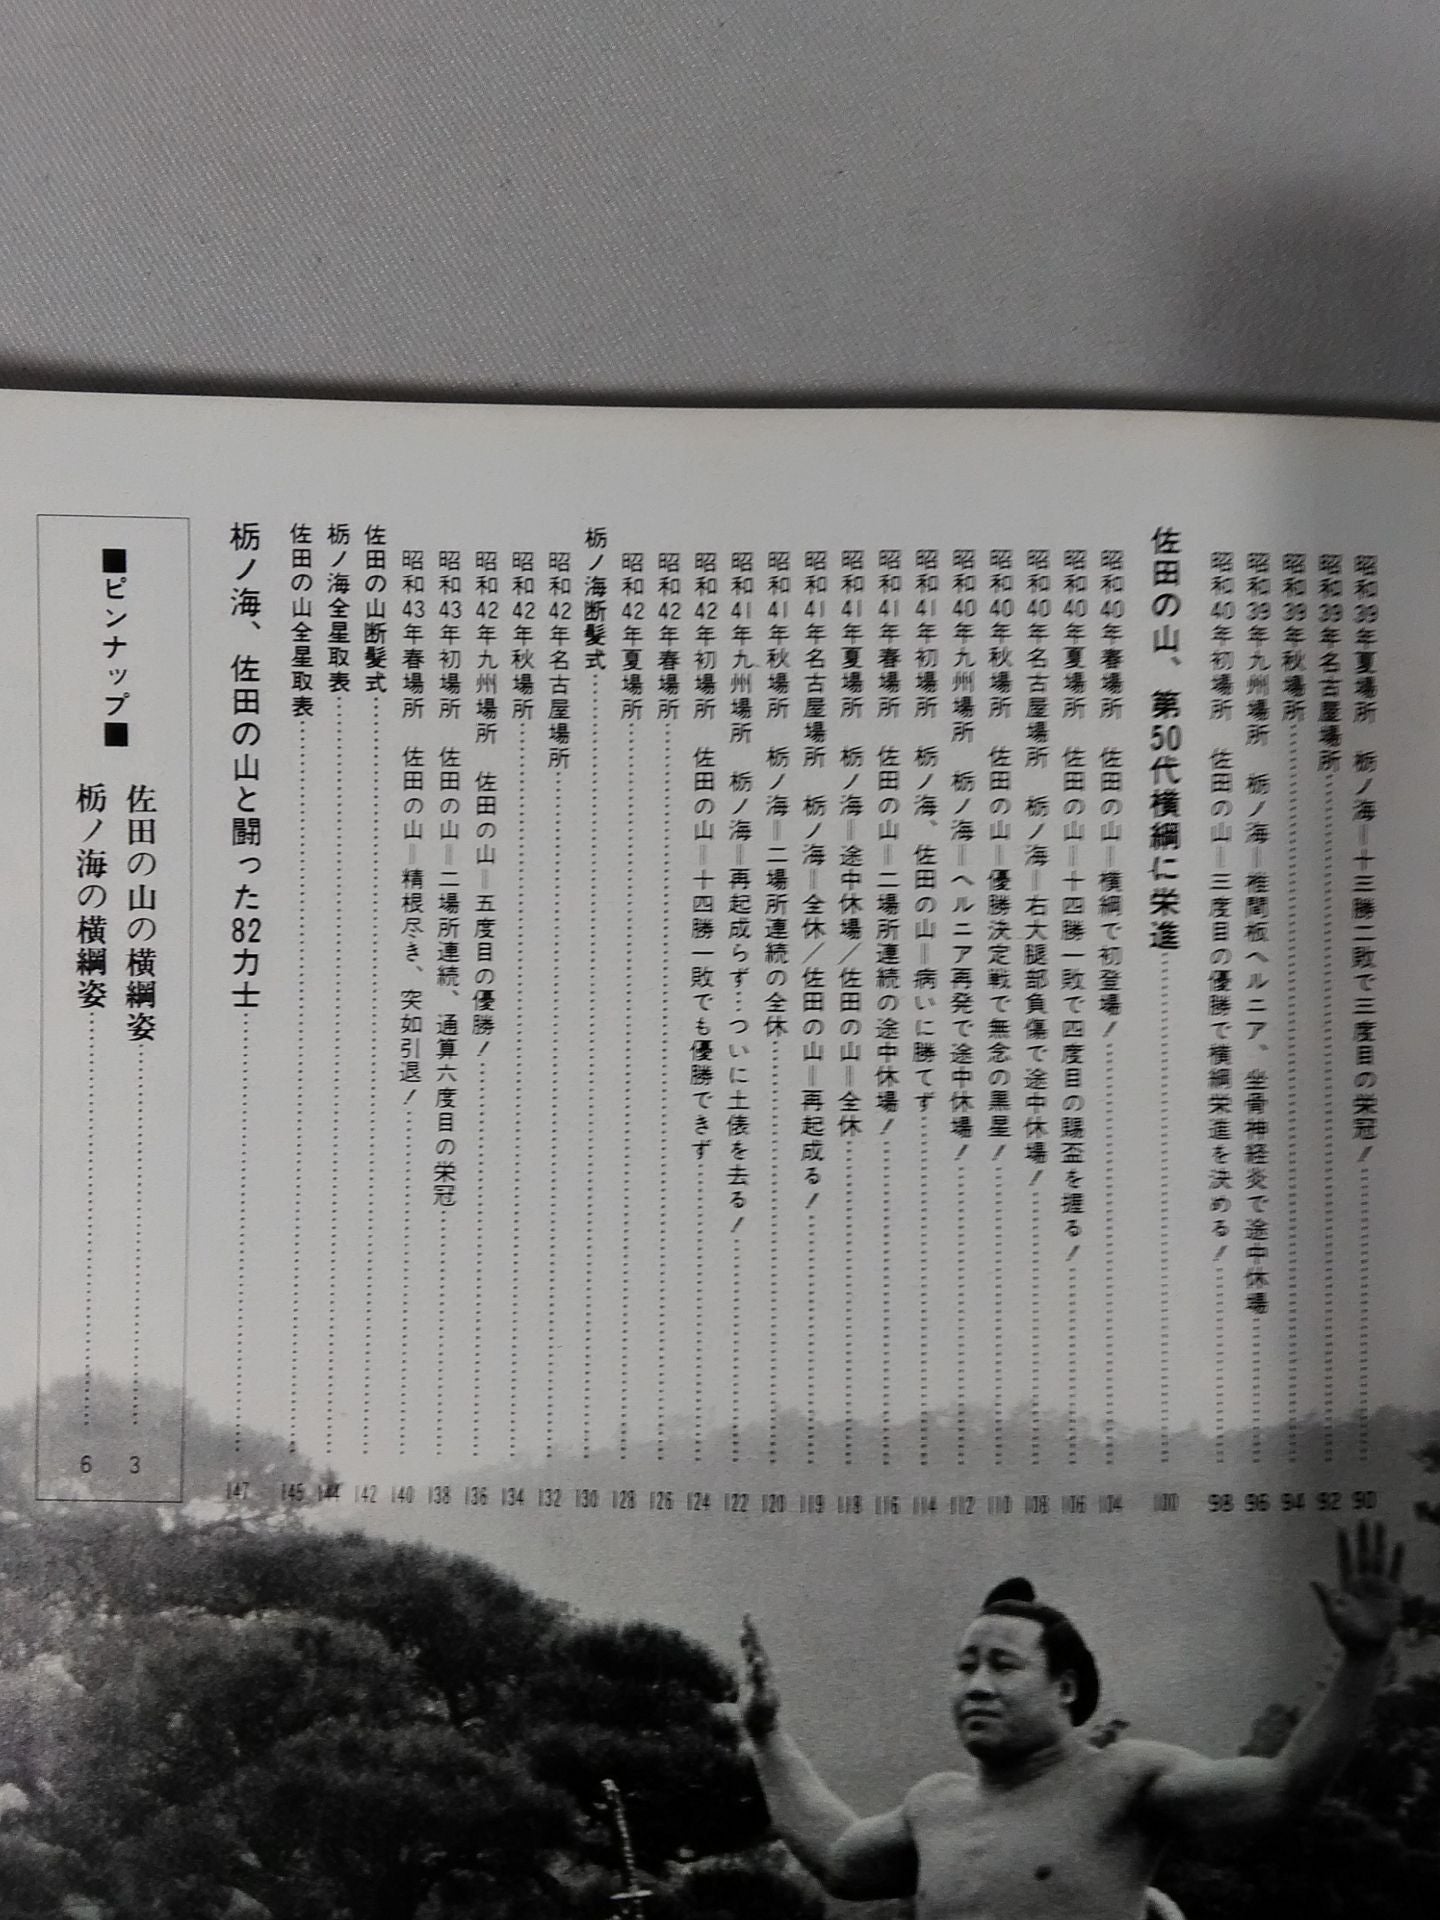 昭和39年夏場所　栃ノ海＝十三勝二敗で三度目の栄冠！……90
昭和39年名古屋場所……92
昭和39年秋場所……94
昭和39年九州場所　栃ノ海＝椎間板ヘルニア、坐骨神経炎で途中休場……96
昭和40年初場所　佐田の山＝三度目の優勝で横綱栄進を決める！……98
佐田の山、第50代横綱に栄進……100
昭和40年春場所　佐田の山＝横綱で初登場！……104
昭和40年夏場所　佐田の山＝十四勝一敗で四度目の賜盃を握る！……106
昭和40年名古屋場所　栃ノ海＝右大腿部負傷で途中休場！……108
昭和40年秋場所　佐田の山＝優勝決定戦で無念の黒星！……110
昭和40年九州場所　栃ノ海＝ヘルニア再発で途中休場！……112
昭和41年初場所　栃ノ海、佐田の山＝病いに勝てず……114
昭和41年春場所　佐田の山＝二場所連続の途中休場！……116
昭和41年夏場所　栃ノ海＝途中休場／佐田の山＝全休……118
昭和41年名古屋場所　栃ノ海＝全休／佐田の山＝再起成る！……119
昭和41年秋場所　栃ノ海＝二場所連続の全休……120
昭和41年九州場所　栃ノ海＝再起成らず…ついに土俵を去る！……122
昭和42年初場所　佐田の山＝十四勝一敗でも優勝できず……124
昭和42年春場所……126
昭和42年夏場所……128
栃ノ海断髪式……130
昭和42年名古屋場所……132
昭和42年秋場所……134
昭和42年九州場所　佐田の山＝五度目の優勝！……136
昭和43年初場所　佐田の山＝二場所連続、通算六度目の栄冠……138
昭和43年春場所　佐田の山＝精根尽き、突如引退！……140
佐田の山断髪式……142
栃ノ海全星取表……144
佐田の山全星取表……145
栃ノ海、佐田の山と闘った82力士……147
■ピンナップ■
佐田の山の横綱姿……3
栃ノ海の横綱姿……6